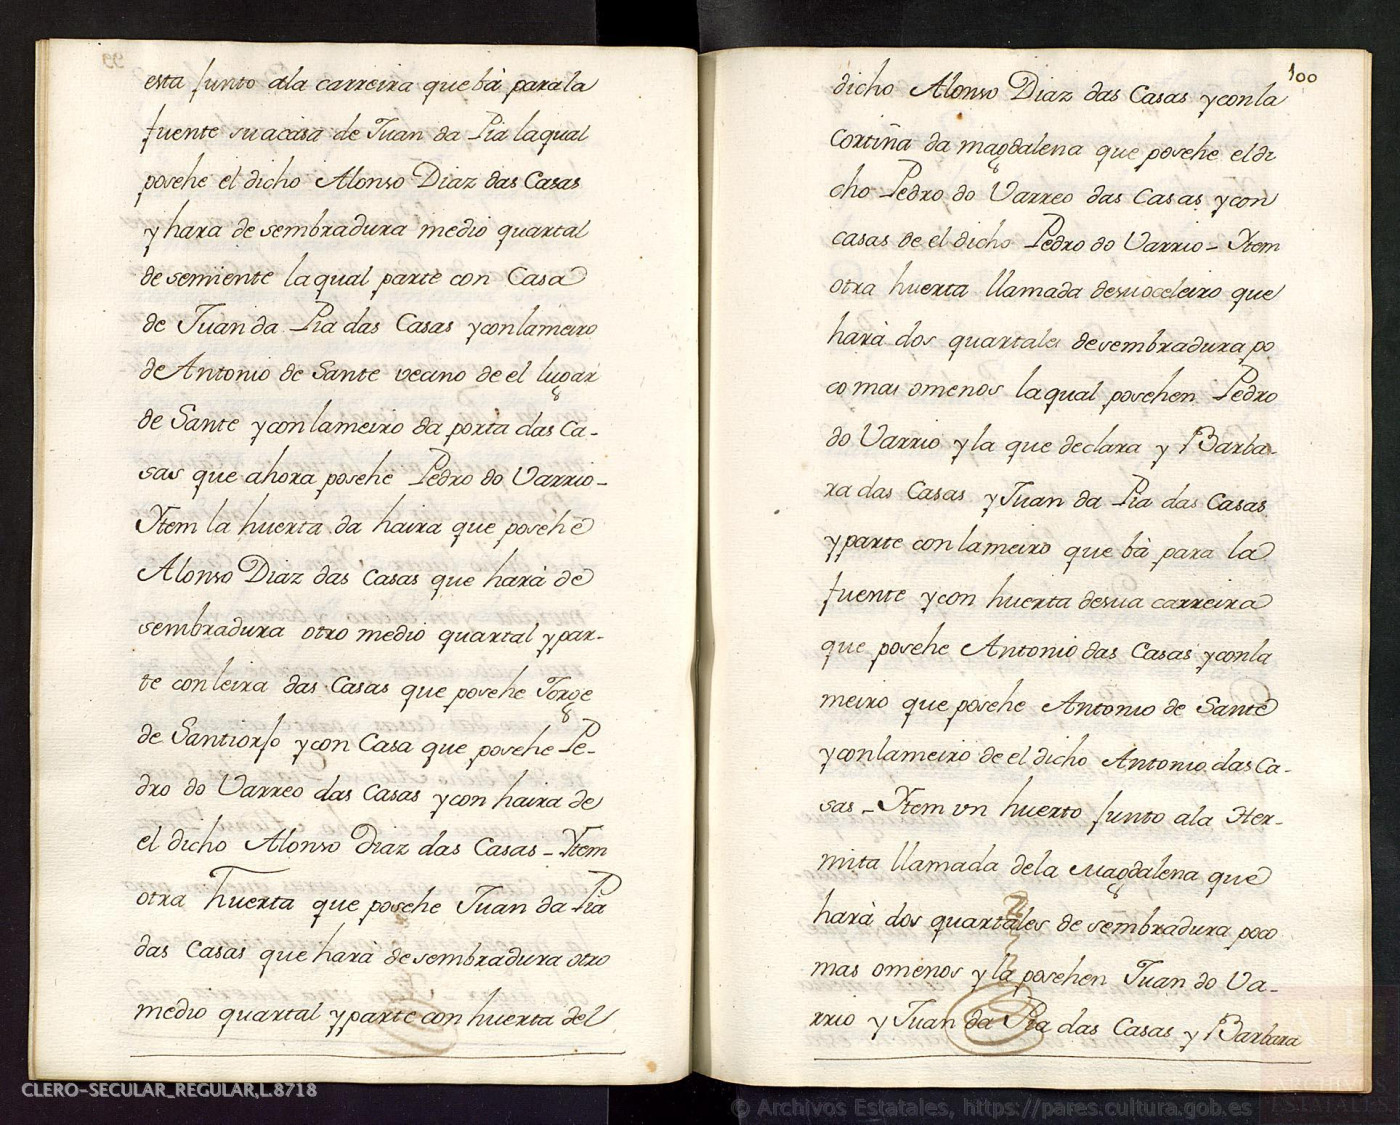 esta junto ala carreira que bà para la
fuente su a casa de Juan da Pia la qual
posehe el dicho Alonso Diaz das Casas
y hara de sembradura medio quartal
de semiente la qual parte con Casa
de Juan da Pia das Casas y con lameiro
de Antonio de Sante vecino de el lugar
de Sante y con lameiro da porta das Ca-
sas que ahora posehe Pedro do Varrio-
Ytem la huerta da haira que posehe
Alonso Diaz das Casas que harà de
sembradura otro medio quartal y par-
te con leira das Casas que posehe Jorge
de Santiorjo y con Casa que posehe Pe-
dro do Varreo das Casas y con haira de
el dicho Alonso Diaz das Casas - Ytem
otra huerta que posehe Juan da Pia
das Casas que harà de sembradura otro
medio quartal y parte con huerta del
100
dicho Alonso Diaz das Casas y con la
Cortiña da magdalena que posehe el di
cho Pedro do Varreo das Casas y con
casas de el dicho Pedro do Varrio - Ytem
otra huerta llamada que
harà dos quartales de sembradura po
co mas o menos la qual posehen Pedro
do Varrio y la que declara y Barba-
ra das Casas y Juan da Pia das Casas
y parte con lameiro que bà para la
fuente y con huerta desua carreira
que posehe Antonio das Casas y con la
meiro que posehe Antonio de Sante
y con lameiro de el dicho Antonio das Ca-
sas - Ytem vn huerto junto ala Her-
mita llamada dela Magdalena que
harà dos quartales de sembradura poco
mas o menos y la posehen Juan do Va-
rrio y Juan da Pia das Casas y Barbara
CLERO-SECULAR_REGULAR,L.8718
© Archivos Estatales, https://pares.cultura.gob.es